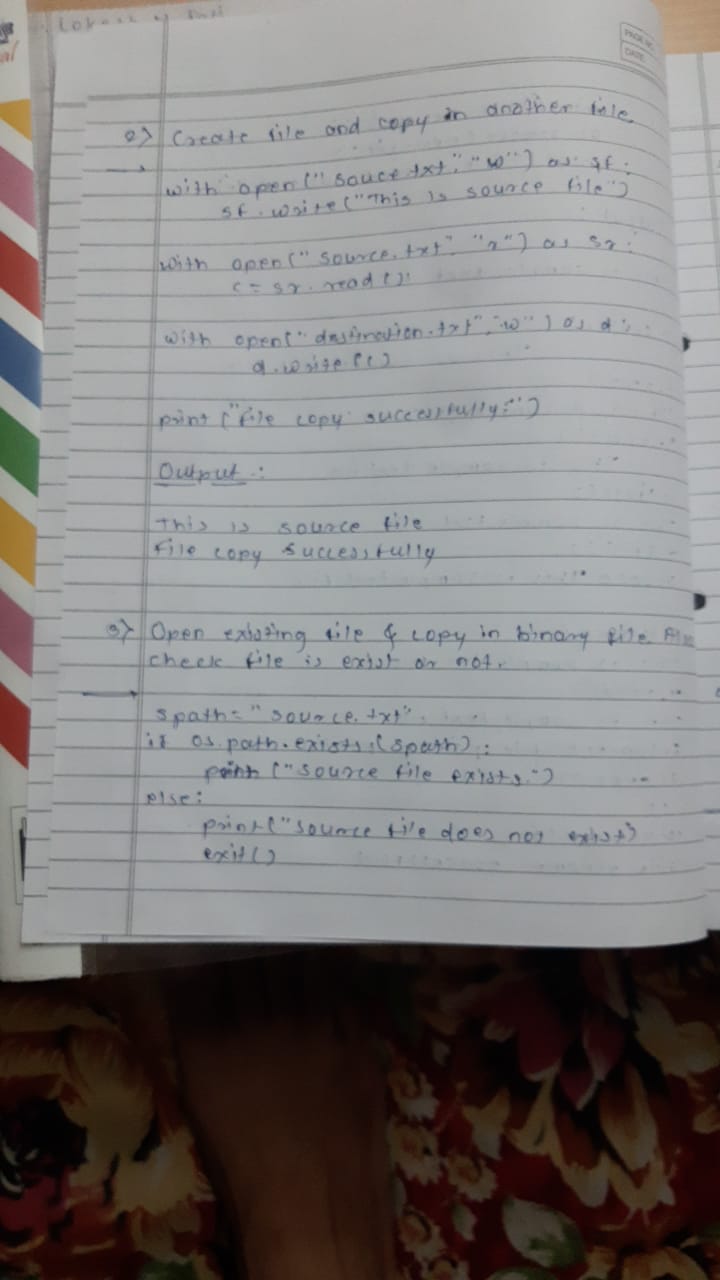 PAGE NO.
DATE
2) Create file and copy in another file.
with open("souce.txt", "w") as sf:
sf.write("This is source file")
with open("source.txt", "r") as sr:
c = sr.read()
with open("destination.txt", "w") as d:
d.write(c)
print("File copy successfully")
Output :
This is source file
File copy successfully
3) Open existing file & copy in binary file.
check file is exist or not.
spath = "source.txt"
if os.path.exists(spath):
print("source file exists.")
else:
print("source file does not exist")
exit()